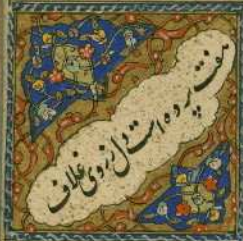 هفت پرده است دل ز روی غلاف